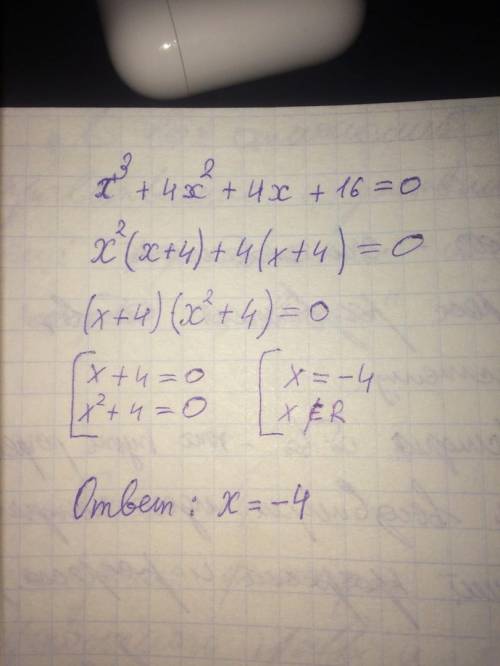 x³ + 4x² + 4x + 16 = 0
x²(x+4) + 4(x+4) = 0
(x+4)(x²+4) = 0
[x+4=0 [x=-4
[x²+4=0 [x∉R
Ответ: x=-4